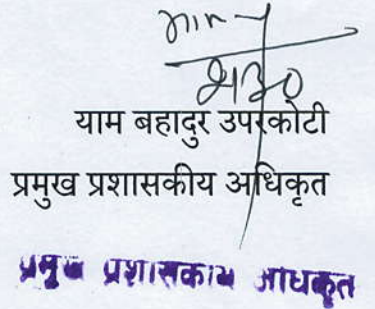 याम बहादुर उपरकोटी
प्रमुख प्रशासकीय अधिकृत
प्रमुख प्रशासकीय अधिकृत